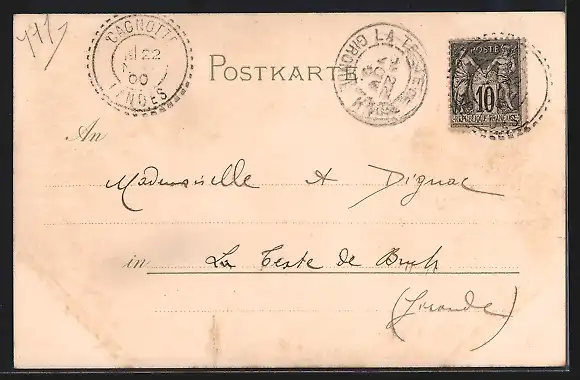 CAGNOTTE
22
00
LANDES
POSTKARTE
LA TESTE-DE-BUCH
GIRONDE
POSTES
10
REPUBLIQUE FRANCAISE
An
Mademoiselle A Dignac
in La Teste de Buch
(Gironde)